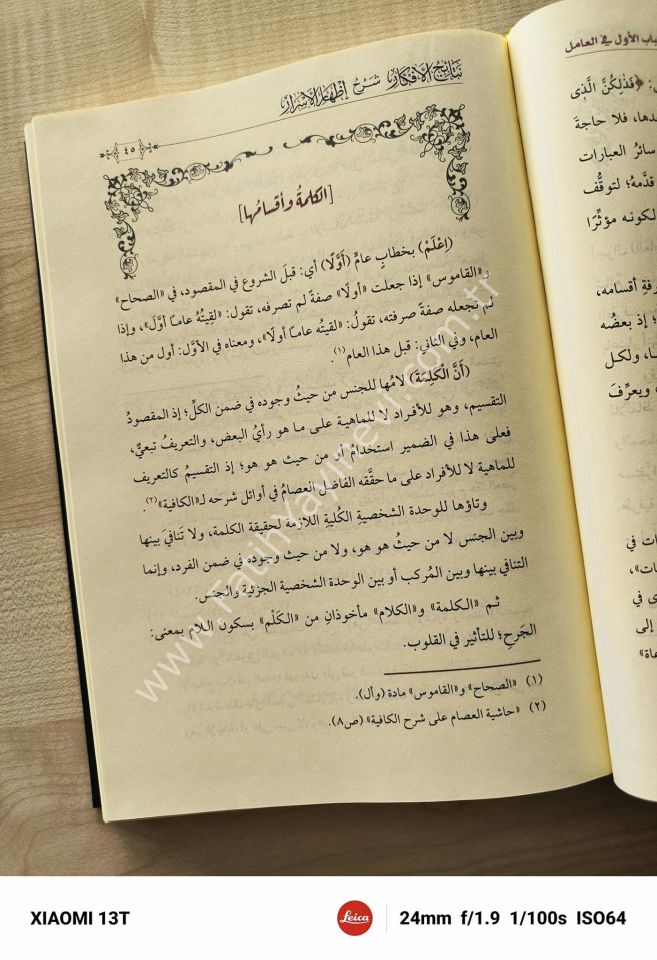 نتائج الأفكار شرح إظهار الأسرار
٤٥
[الكلمة وأقسامها]
(اِعْلَمْ) بخطابٍ عامٍّ (أَوَّلًا) أي: قبلَ الشروع في المقصود، في «الصحاح»
و«القاموس» إذا جعلت «أولًا» صفةً لم تصرفه، تقول: «لقِيتُهُ عاماً أوَّلَ»، وإذا
لم تجعله صفةً صرفته، تقولُ: «لقيتُه عاماً أولًا»، ومعناه في الأوَّل: أول من هذا
العام، وفي الثاني: قبل هذا العام (١).
(أَنَّ الْكَلِمَةَ) لامُها للجنس من حيثُ وجوده في ضمن الكلِّ؛ إذ المقصودُ
التقسيم، وهو للأفراد لا للماهية على ما هو رأيُ البعض، والتعريف تبعيٌّ،
فعلى هذا في الضمير استخدامٌ أو من حيث هو هو؛ إذ التقسيمُ كالتعريف
للماهية لا للأفراد على ما حقَّقه الفاضل العصامُ في أوائل شرحه لـ«الكافية» (٢).
وتاؤها للوحدة الشخصيةِ الكُليةِ اللازمة لحقيقة الكلمة، ولا تَنافيَ بينها
وبين الجنس لا من حيثُ هو هو، ولا من حيث وجوده في ضمن الفرد، وإنما
التنافي بينها وبين المُركب أو بين الوحدة الشخصية الجزئية والجنس.
ثم «الكلمة» و«الكلام» مأخوذانِ من «الكَلْم» بسكون اللام بمعنى:
الجَرحِ؛ للتأثير في القلوب.
(١) «الصحاح» و«القاموس» مادة (وأل).
(٢) «حاشية العصام على شرح الكافية» (ص٨).
الباب الأول في العامل
﴿فَذَلِكُنَّ الَّذِي
فلا حاجةَ
سائرُ العبارات
قدَّمهُ؛ لتوقُّف
لكونه مؤثِّرًا
أقسامه،
؛ إذ بعضُه
ولكل
ويعرِّفَ
في
إلى
www.FatihYayinevi.com.tr
XIAOMI 13T
Leica
24mm f/1.9 1/100s ISO64